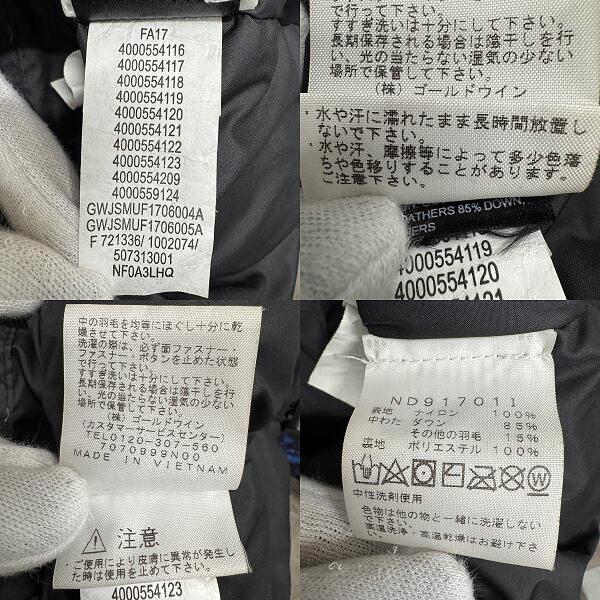 FA17
4000554116
4000554117
4000554118
4000554119
4000554120
4000554121
4000554122
4000554123
4000554209
4000559124
GWJSMUF1706004A
GWJSMUF1706005A
F 721336/ 1002074/
507313001
NF0A3LHQ
で行って下さい。
すすぎ洗いは十分にして下さい。
長期保存される場合は陰干しを行
い、光の当たらない湿気の少ない
場所で保管して下さい。
(株) ゴールドウイン
・水や汗に濡れたまま長時間放置し
ないで下さい。
・水や汗、摩擦等によって多少色落
ちや色移りすることがあります。
ご注意下さい。
FEATHERS 85% DOWN,
4000554119
4000554120
中の羽毛を均等にほぐし十分に乾
燥させて下さい。
洗濯の際は、必ず面ファスナー・
ファスナー・ボタンを止めた状態
で行って下さい。
すすぎ洗いは十分にして下さい。
長期保存される場合は陰干しを行
い、光の当たらない湿気の少ない
場所で保管して下さい。
(株) ゴールドウイン
(カスタマーサービスセンター)
TEL0120-307-560
7070999N00
MADE IN VIETNAM
注意
・ご使用により皮膚に異常が発生し
た時は使用を止めて下さい。
4000554123
ND91701I
表地 ナイロン 100%
中わた ダウン 85%
その他の羽毛 15%
裏地 ポリエステル 100%
中性洗剤使用
色物は他の物と一緒に洗濯しない
で下さい。
高温洗浄・高温乾燥はお避け下さ